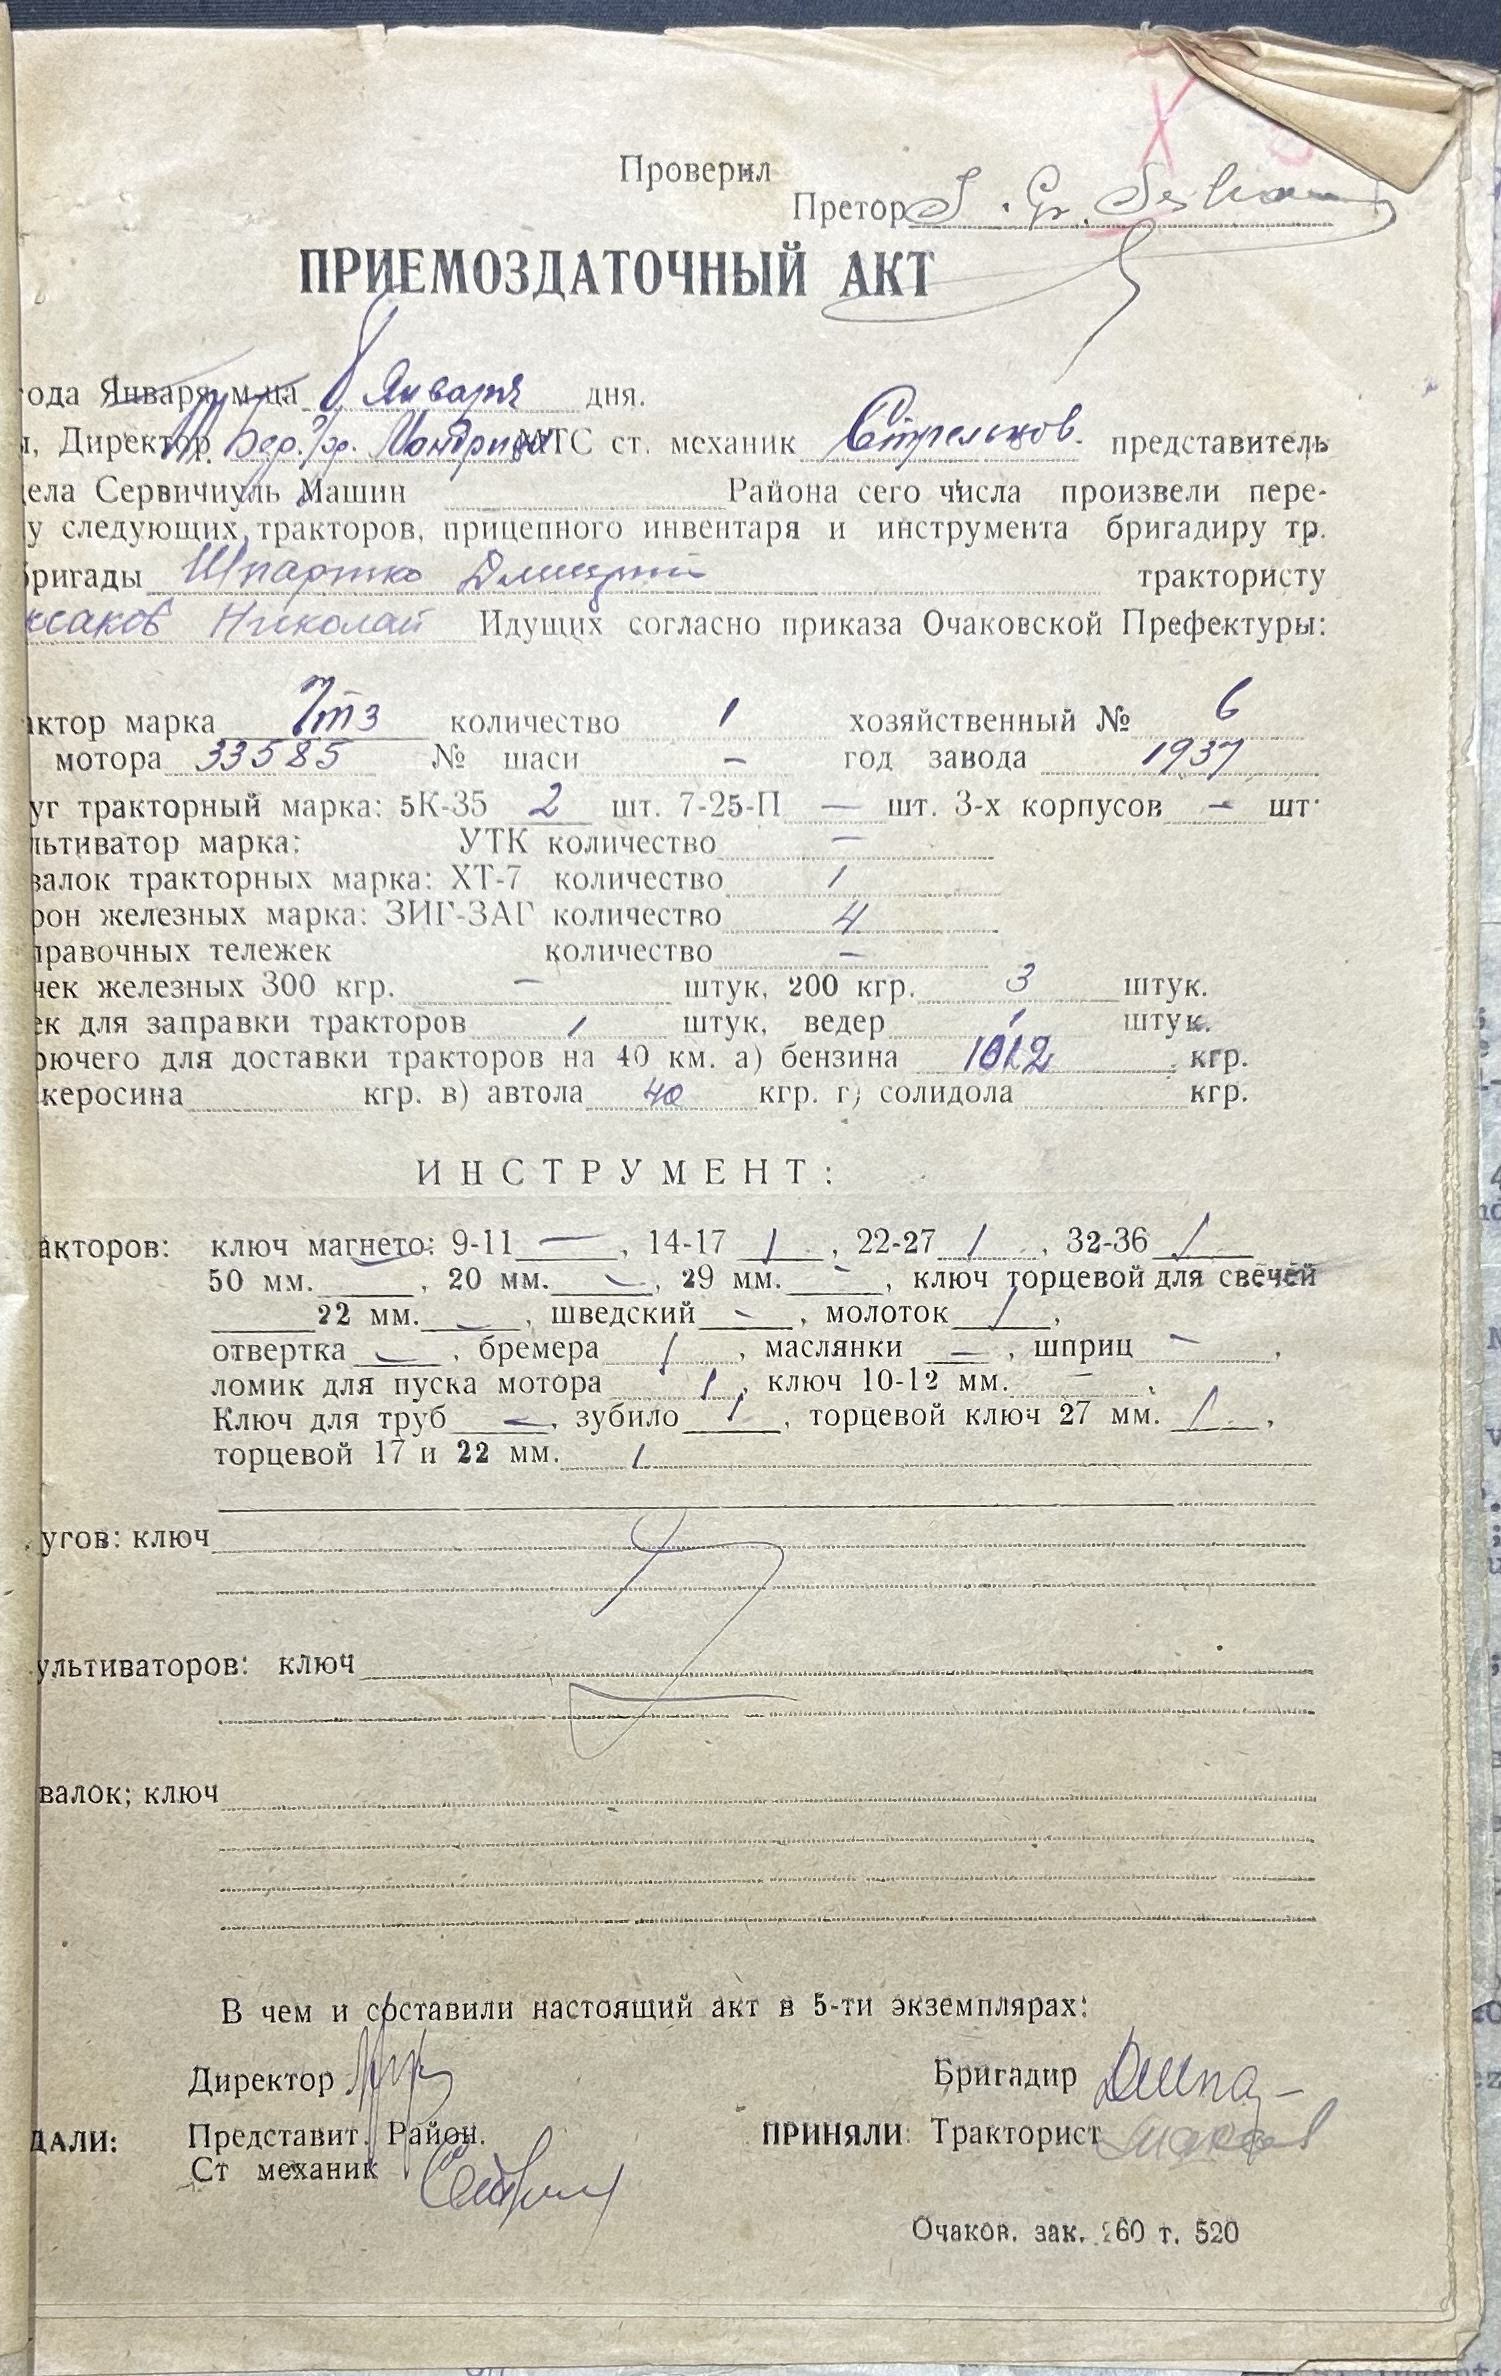 Проверил
Претор
ПРИЕМОЗДАТОЧНЫЙ АКТ
года Января м-ца 8 Января дня.
, Директор МТС ст. механик Стрельцов. представитель
ела Сервичиуль Машин Района сего числа произвели пере-
у следующих тракторов, прицепного инвентаря и инструмента бригадиру тр.
бригады Шпартко Дмитрий трактористу
ксаков Николай Идущих согласно приказа Очаковской Префектуры:
актор марка количество 1 хозяйственный № 6
мотора 33585 № шаси - год завода 1937
уг тракторный марка: 5К-35 2 шт. 7-25-П — шт. 3-х корпусов - шт.
льтиватор марка: УТК количество —
валок тракторных марка: ХТ-7 количество 1
рон железных марка: ЗИГ-ЗАГ количество 4
правочных тележек количество —
чек железных 300 кгр. - штук, 200 кгр. 3 штук.
ек для заправки тракторов 1 штук, ведер 1 штук.
рючего для доставки тракторов на 40 км. а) бензина кгр.
керосина кгр. в) автола 40 кгр. г) солидола кгр.
ИНСТРУМЕНТ:
акторов: ключ магнето: 9-11 —, 14-17 1, 22-27 1, 32-36 1
50 мм. , 20 мм. -, 29 мм. -, ключ торцевой для свечей
22 мм. -, шведский -, молоток 1,
отвертка -, бремера 1, маслянки —, шприц -,
ломик для пуска мотора 1, ключ 10-12 мм. -,
Ключ для труб -, зубило 1, торцевой ключ 27 мм. 1,
торцевой 17 и 22 мм. 1
угов: ключ
ультиваторов: ключ
валок; ключ
В чем и составили настоящий акт в 5-ти экземплярах:
Директор Бригадир
ДАЛИ: Представит. Район. ПРИНЯЛИ: Тракторист
Ст механик
Очаков. зак. 260 т. 520